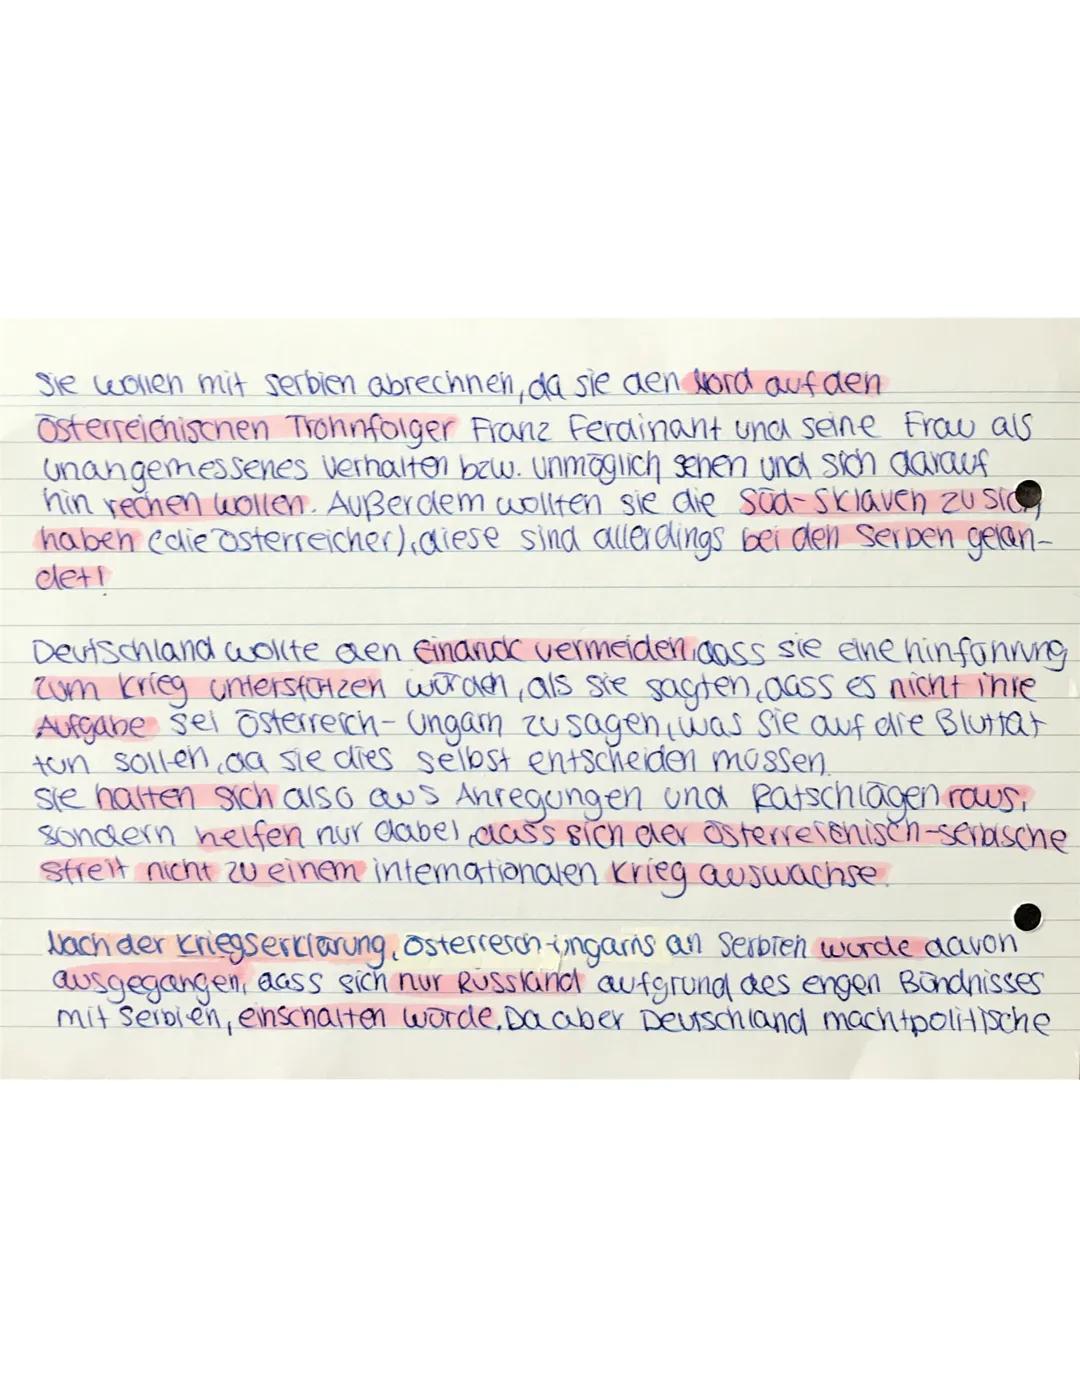 Sie wollen mit Serbien abrechnen, da sie den Mord auf den
österreichischen Trohnfolger Franz Ferdinant und seine Frau als
unangemessenes Verhalten bzw. unmöglich sehen und sich darauf
hin rechen wollen. Außerdem wollten sie die Süd-Sklaven zu sich
haben (die Österreicher), diese sind allerdings bei den Serben gelan-
det!
Deutschland wollte den Eindruck vermeiden, dass sie eine hinführung
zum Krieg unterstützen würden, als sie sagten, dass es nicht ihre
Aufgabe sei Österreich-Ungarn zu sagen, was sie auf die Bluttat
tun sollen, da sie dies selbst entscheiden müssen.
Sie halten sich also aus Anregungen und Ratschlägen raus,
sondern helfen nur dabei, dass sich der österreichisch-serbische
Streit nicht zu einem internationalen Krieg auswachse.
Nach der Kriegserklärung, Österreich-ungarns an Serbien wurde davon
ausgegangen, dass sich nur Russland aufgrund des engen Bündnisses
mit Serbien, einschalten würde. Da aber Deutschland machtpolitische